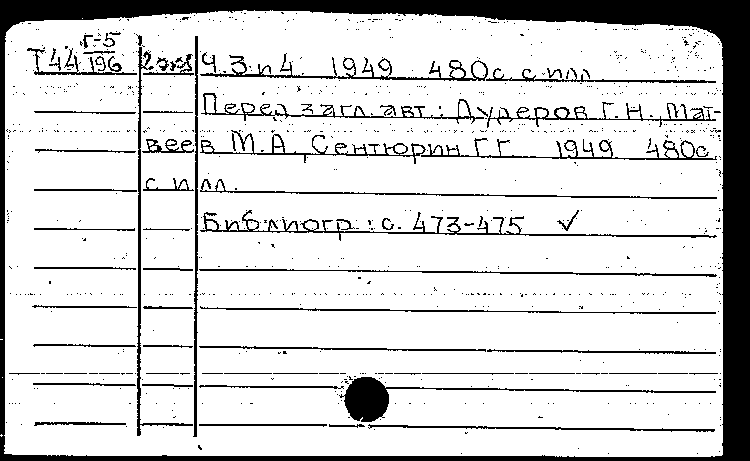 Т44 Г-5/196 2 экз Ч. 3 и 4. 1949 480 с. с илл.
Перед загл. авт.: Дудеров Г.Н., Мат-
веев М.А., Сентюрин Г.Г. 1949 480 с.
с илл.
Библиогр.: с. 473-475 ✓